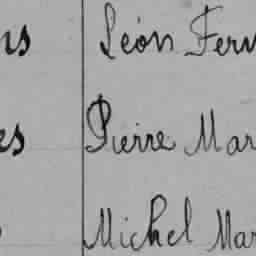 ns Léon Fern
es Pierre Mar
Michel Mar